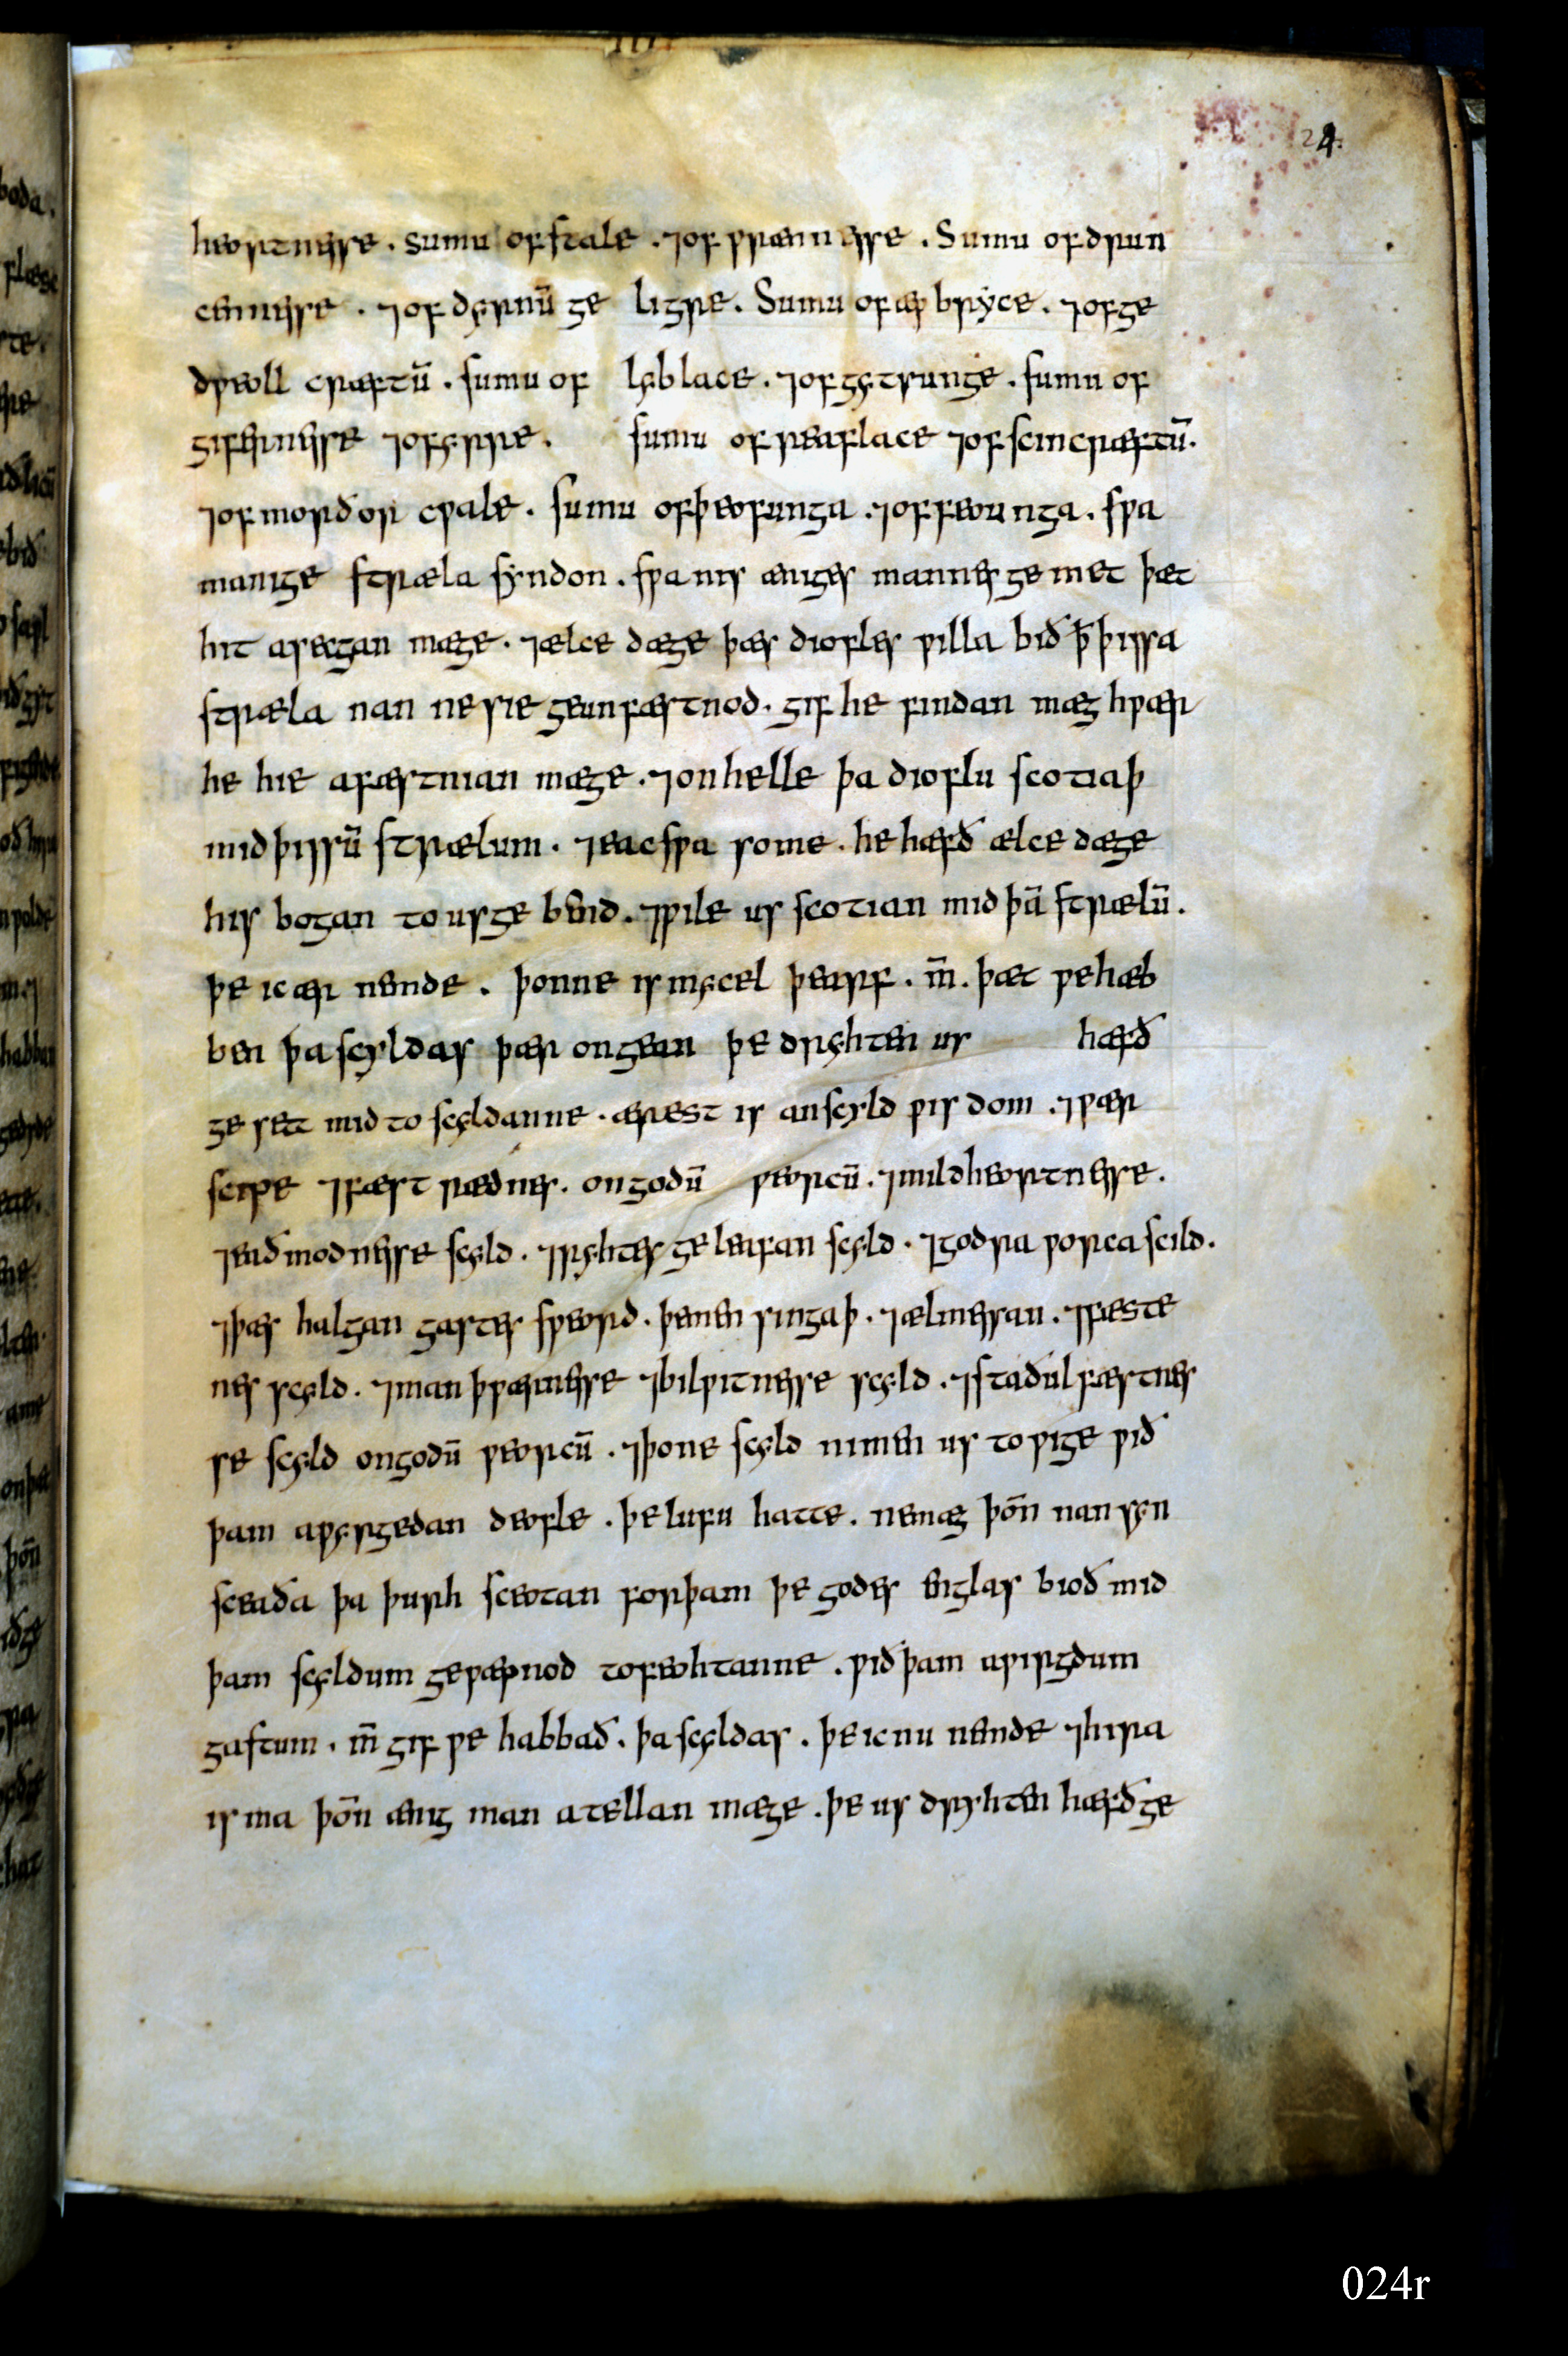 24.
heortnesse . sumu of stale . ⁊ of ƿrænnesse . Sumu of drun
cennesse . ⁊ of dyrnū ge ligre . Sumu of æƿ bryce . ⁊ of ge
dƿeoll cræftū . sumu of lyblace . ⁊ of gytsunge . sumu of
gifernesse ⁊ of yrre . sumu of reaflace ⁊ of scincræftū .
⁊ of morðor cƿale . sumu of þeofunga . ⁊ of feounga . sƿa
manige stræla syndon . sƿa nis æniges mannes gemet þæt
hit asecgan mæge . ⁊ ælce dæge þæs diofles ƿilla bið ꝥ þissa
stræla nan ne sie geunfæstnod . gif he findan mæg hƿær
he hie afæstnian mæge . ⁊ on helle þa dioflu scotiaþ
mid þissū strælum . ⁊ eac sƿa some . he hæfð ælce dæge
his bogan to us gebend . ⁊ ƿile us scotian mid þā strælū .
þe ic ær nemde . þonne is mycel þearf . m̄ . þæt ƿe hæb
ben þa scyldas þær ongean þe dryhten us hæfð
geset mid to scyldanne . ærest is an scyld ƿisdom . ⁊ ƿær
scipe ⁊ fæst rædnes . on godū ƿeorcū . ⁊ mildheortnesse .
⁊ eaðmodnesse scyld . ⁊ ryhtes geleafan scyld . ⁊ godra ƿorca scild .
⁊ þæs halgan gastes sƿeord . þe men singaþ . ⁊ ælmessan . ⁊ fæste
nes scyld . ⁊ manþƿærnesse ⁊ bilƿitnesse scyld . ⁊ staðulfæstnes
se scyld on godū ƿeorcū . ⁊ þone scyld nimen us to ƿige ƿið
þam aƿyrgedan deofle . þe lufu hatte . ne mæg þōn nan syn
sceaða þa þurh sceotan forþam þe godes englas bioð mid
þam scyldum geƿæpnod to feohtanne . ƿið þam aƿirgdum
gastum . m̄ gif ƿe habbað . þa scyldas . þe ic nu nemde ⁊ hira
is ma þōn ænig man atellan mæge . þe us dryhten hæfð ge
024r